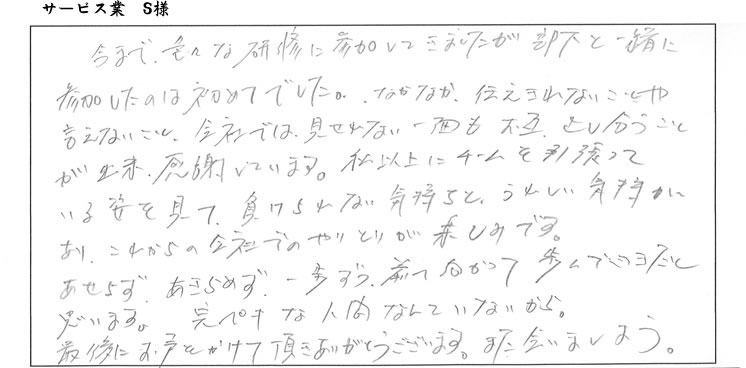 サービス業 S様
今まで、色々な研修に参加してきましたが部下と一緒に
参加したのは初めてでした。なかなか、伝えきれないことや
言えないこと、会社では、見せれない一面も互、出し合うこと
が出来、感謝しています。私以上にチームを引張って
いる姿を見て、負けられない気持ちと、うれしい気持が
あり、これからの会社でのやりとりが楽しみです。
あせらず、あきらめず、一歩ずつ、前て向かって歩んでいきたいと
思います。完ペキな人間なんていないから。
最後にお声をかけて頂きありがとうございます。また会いましょう。